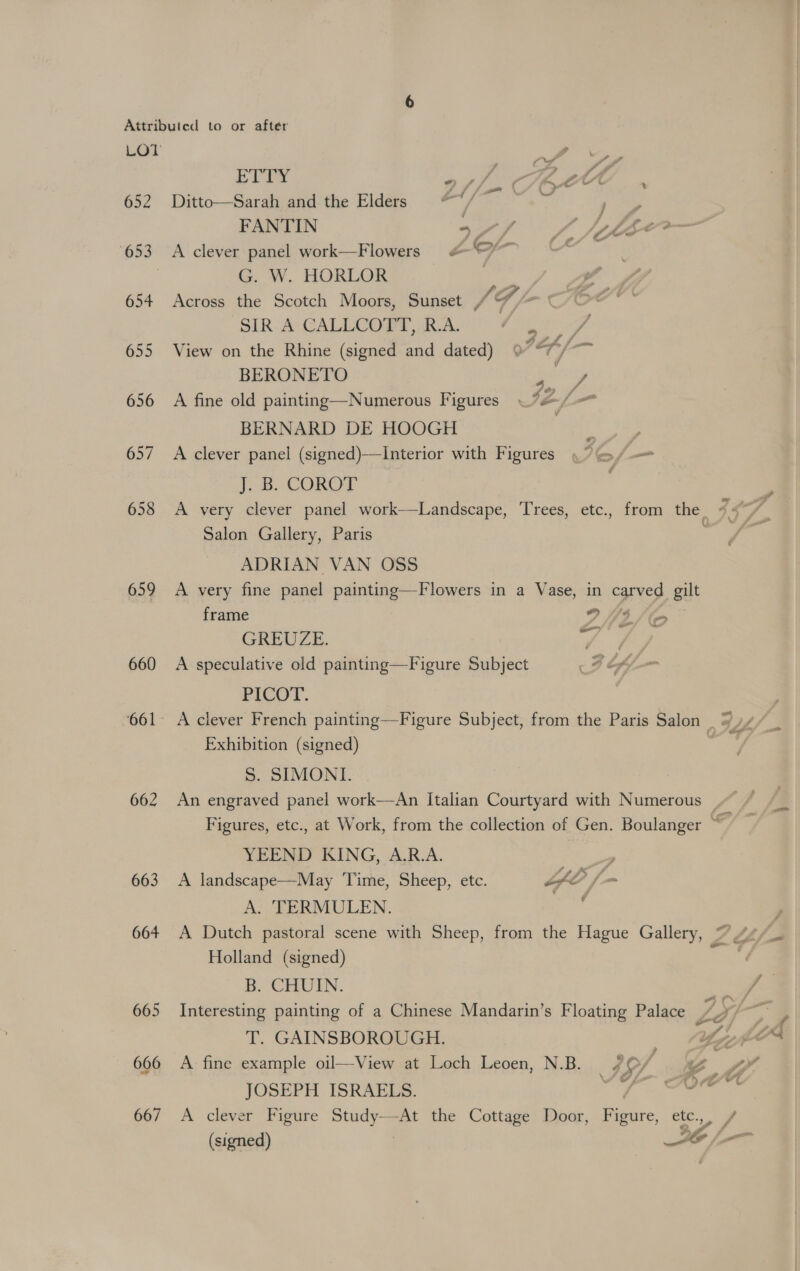 6
Attributed to or after
LOT
ETTY
652 Ditto—Sarah and the Elders
FANTIN
653 A clever panel work—Flowers
G. W. HORLOR
654 Across the Scotch Moors, Sunset
SIR A CALLCOTT, R.A.
655 View on the Rhine (signed and dated)
BERONETO
656 A fine old painting—Numerous Figures
BERNARD DE HOOGH
657 A clever panel (signed)—Interior with Figures
J. B. COROT
658 A very clever panel work—Landscape, Trees, etc., from the
Salon Gallery, Paris
ADRIAN VAN OSS
659 A very fine panel painting—Flowers in a Vase, in carved gilt
frame
GREUZE.
660 A speculative old painting—Figure Subject
PICOT.
661 A clever French painting—Figure Subject, from the Paris Salon
Exhibition (signed)
S. SIMONI.
662 An engraved panel work—An Italian Courtyard with Numerous
Figures, etc., at Work, from the collection of Gen. Boulanger
YEEND KING, A.R.A.
663 A landscape—May Time, Sheep, etc.
A. TERMULEN.
664 A Dutch pastoral scene with Sheep, from the Hague Gallery,
Holland (signed)
B. CHUIN.
665 Interesting painting of a Chinese Mandarin's Floating Palace
T. GAINSBOROUGH.
666 A fine example oil—View at Loch Leoen, N.B.
JOSEPH ISRAELS.
667 A clever Figure Study—At the Cottage Door, Figure, etc.,
(signed)